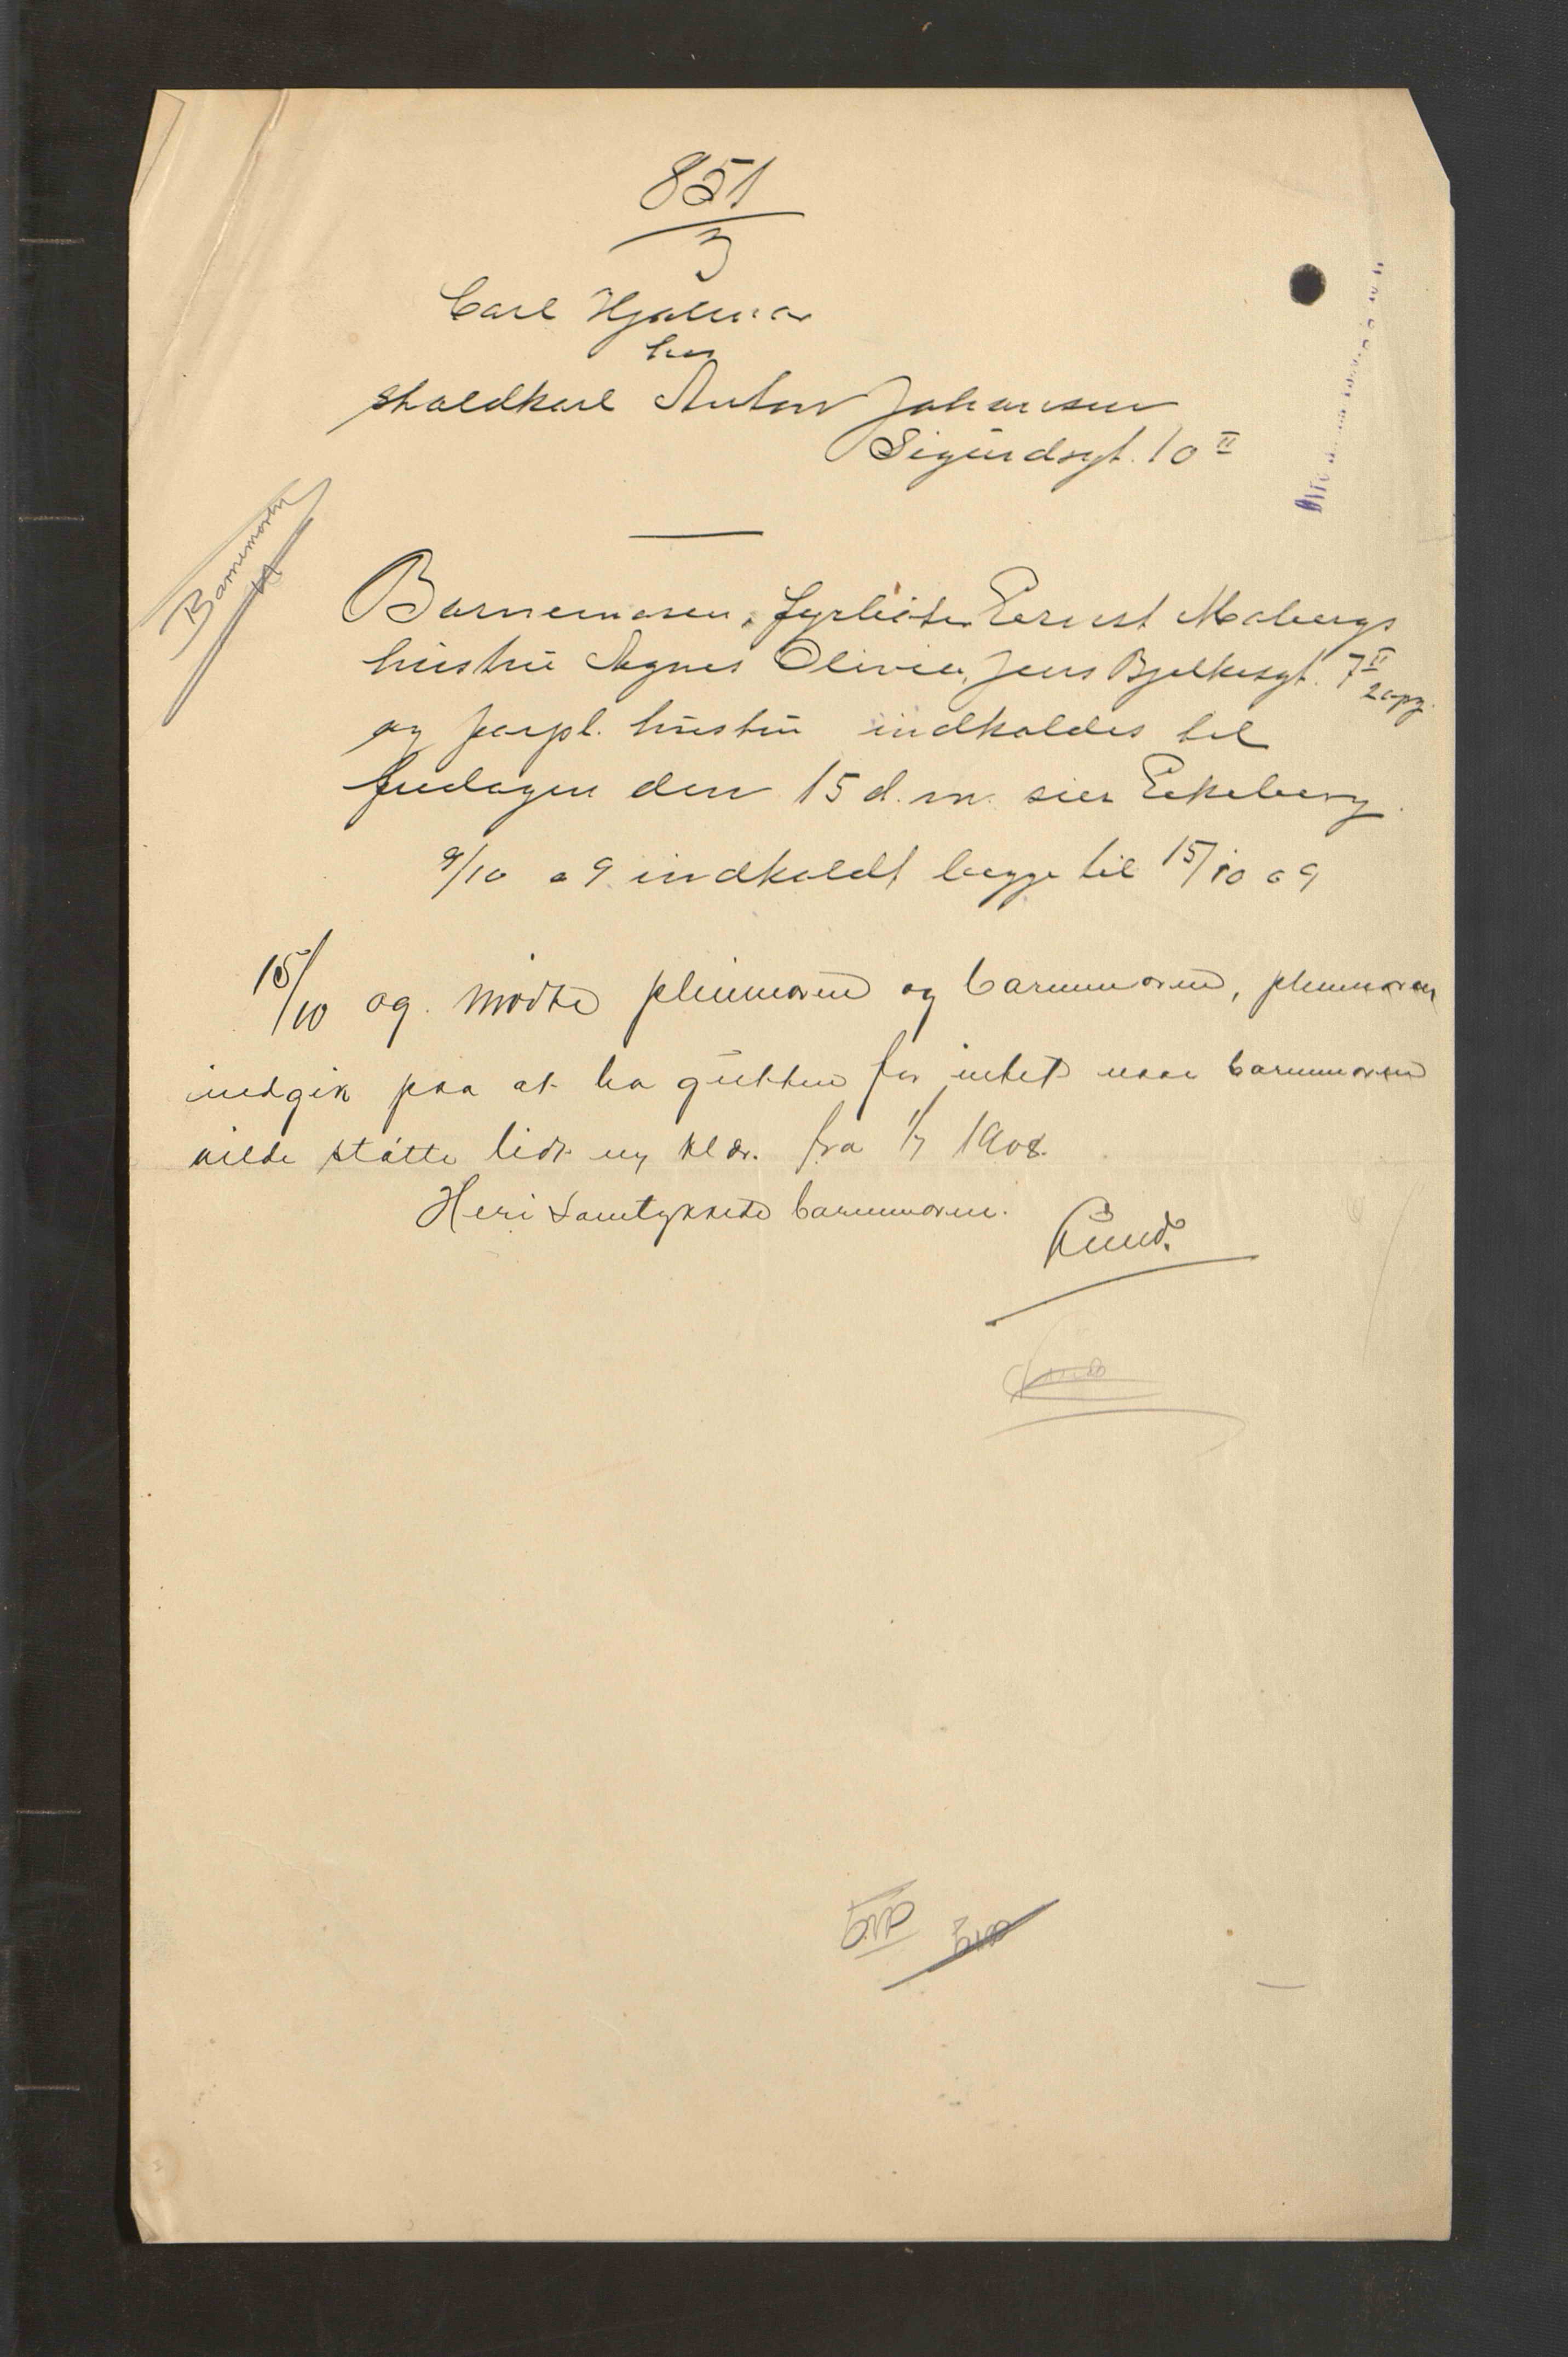 851
3
Carl Hjalmar
hos
staldkarl Anton Johansen
Sigurdsgt. 10 II
Barnemoren
Barnemoren, fyrbøter Ernst Mobergs
hustru Agnes Olivia, Jens Bjelkesgt. 7 II
2 opg.
og forpl. hustru indkaldes til
fredagen den 15 d. m. sier Eekeberg
9/10 09 indkaldt begge til 15/10 09
15/10 09. mødte pleiemoren og barnemoren, pleiemoren
indgik paa at ha gutten for intet naar barnemoren
vilde støtte lidt m, klær. fra 1/7 1908.
Heri samtykkede barnemoren.
Lund.